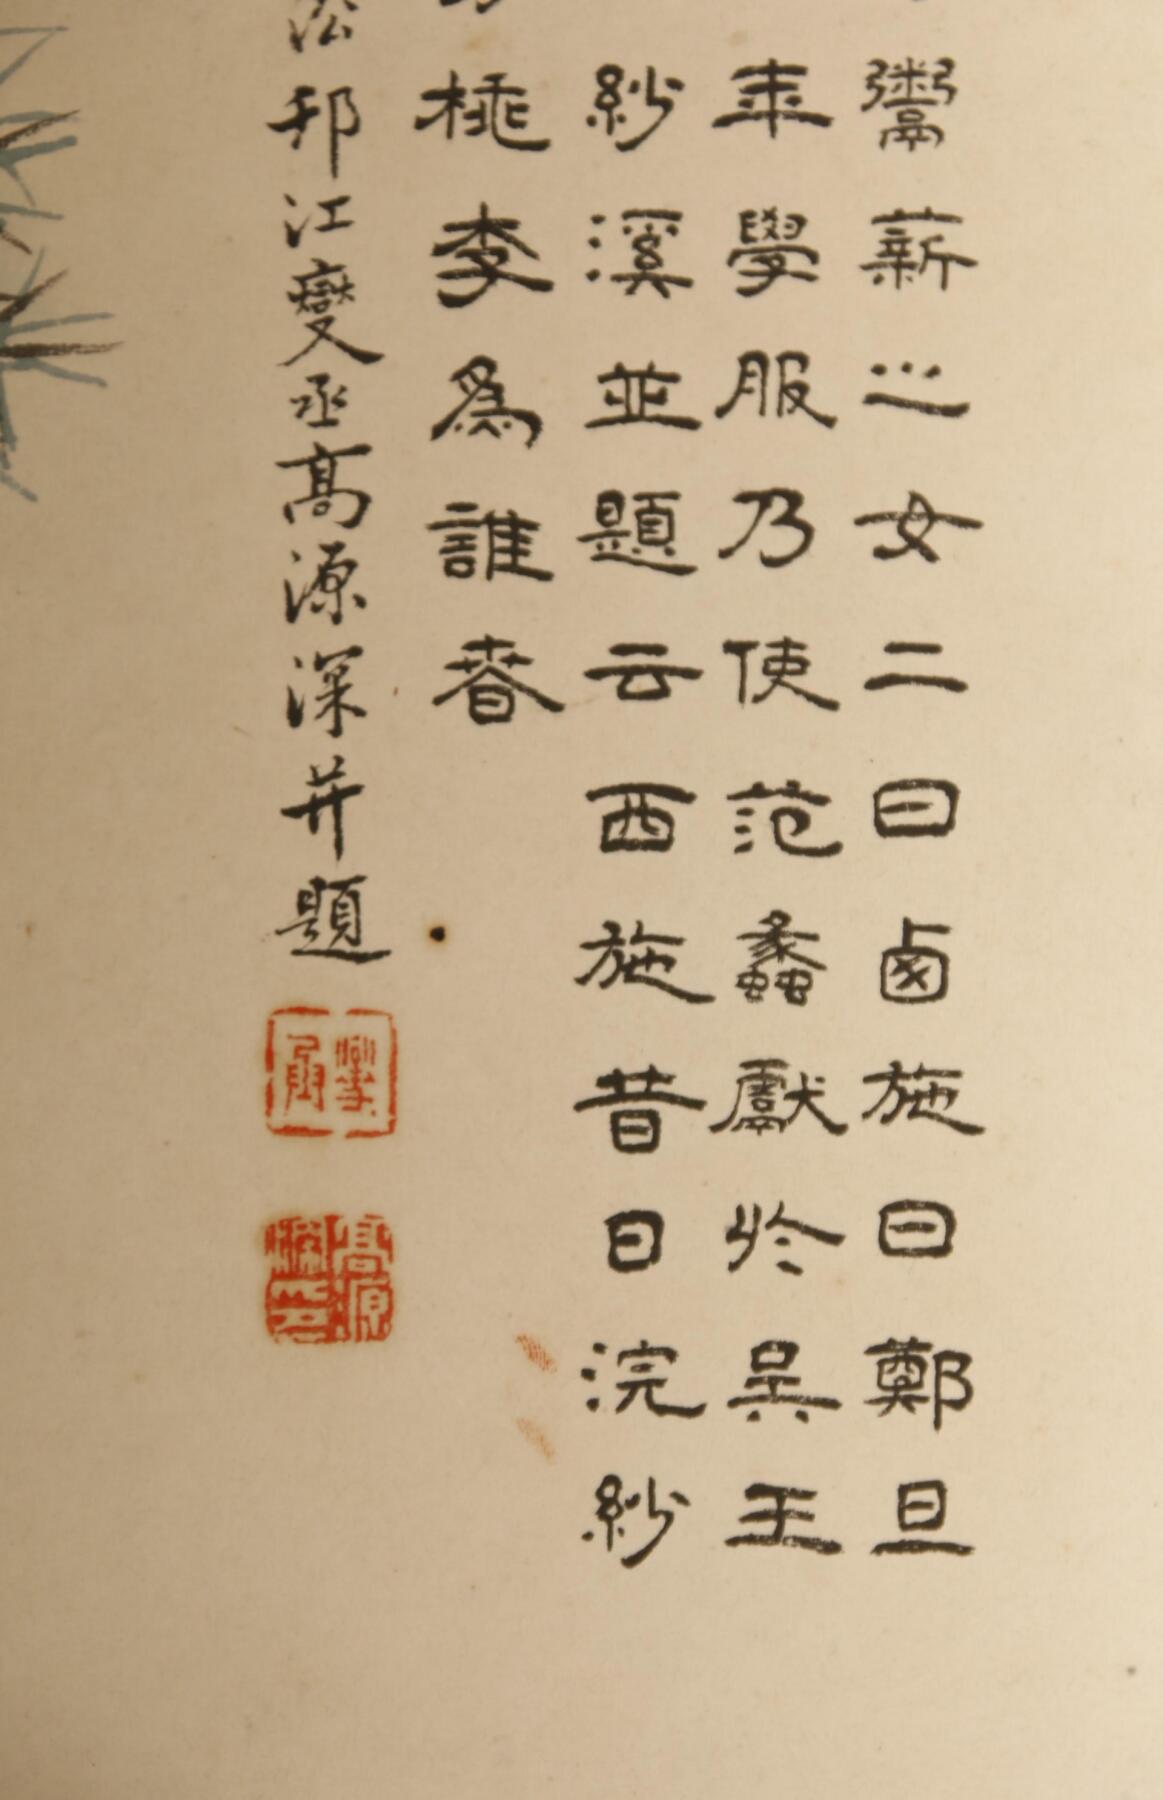 鬻薪之女二曰卤施曰鄭旦
年學服乃使范蠡獻於吳王
紗溪並題云西施昔日浣紗
桃李為誰春
邗江燮丞高源深并題
高源深印